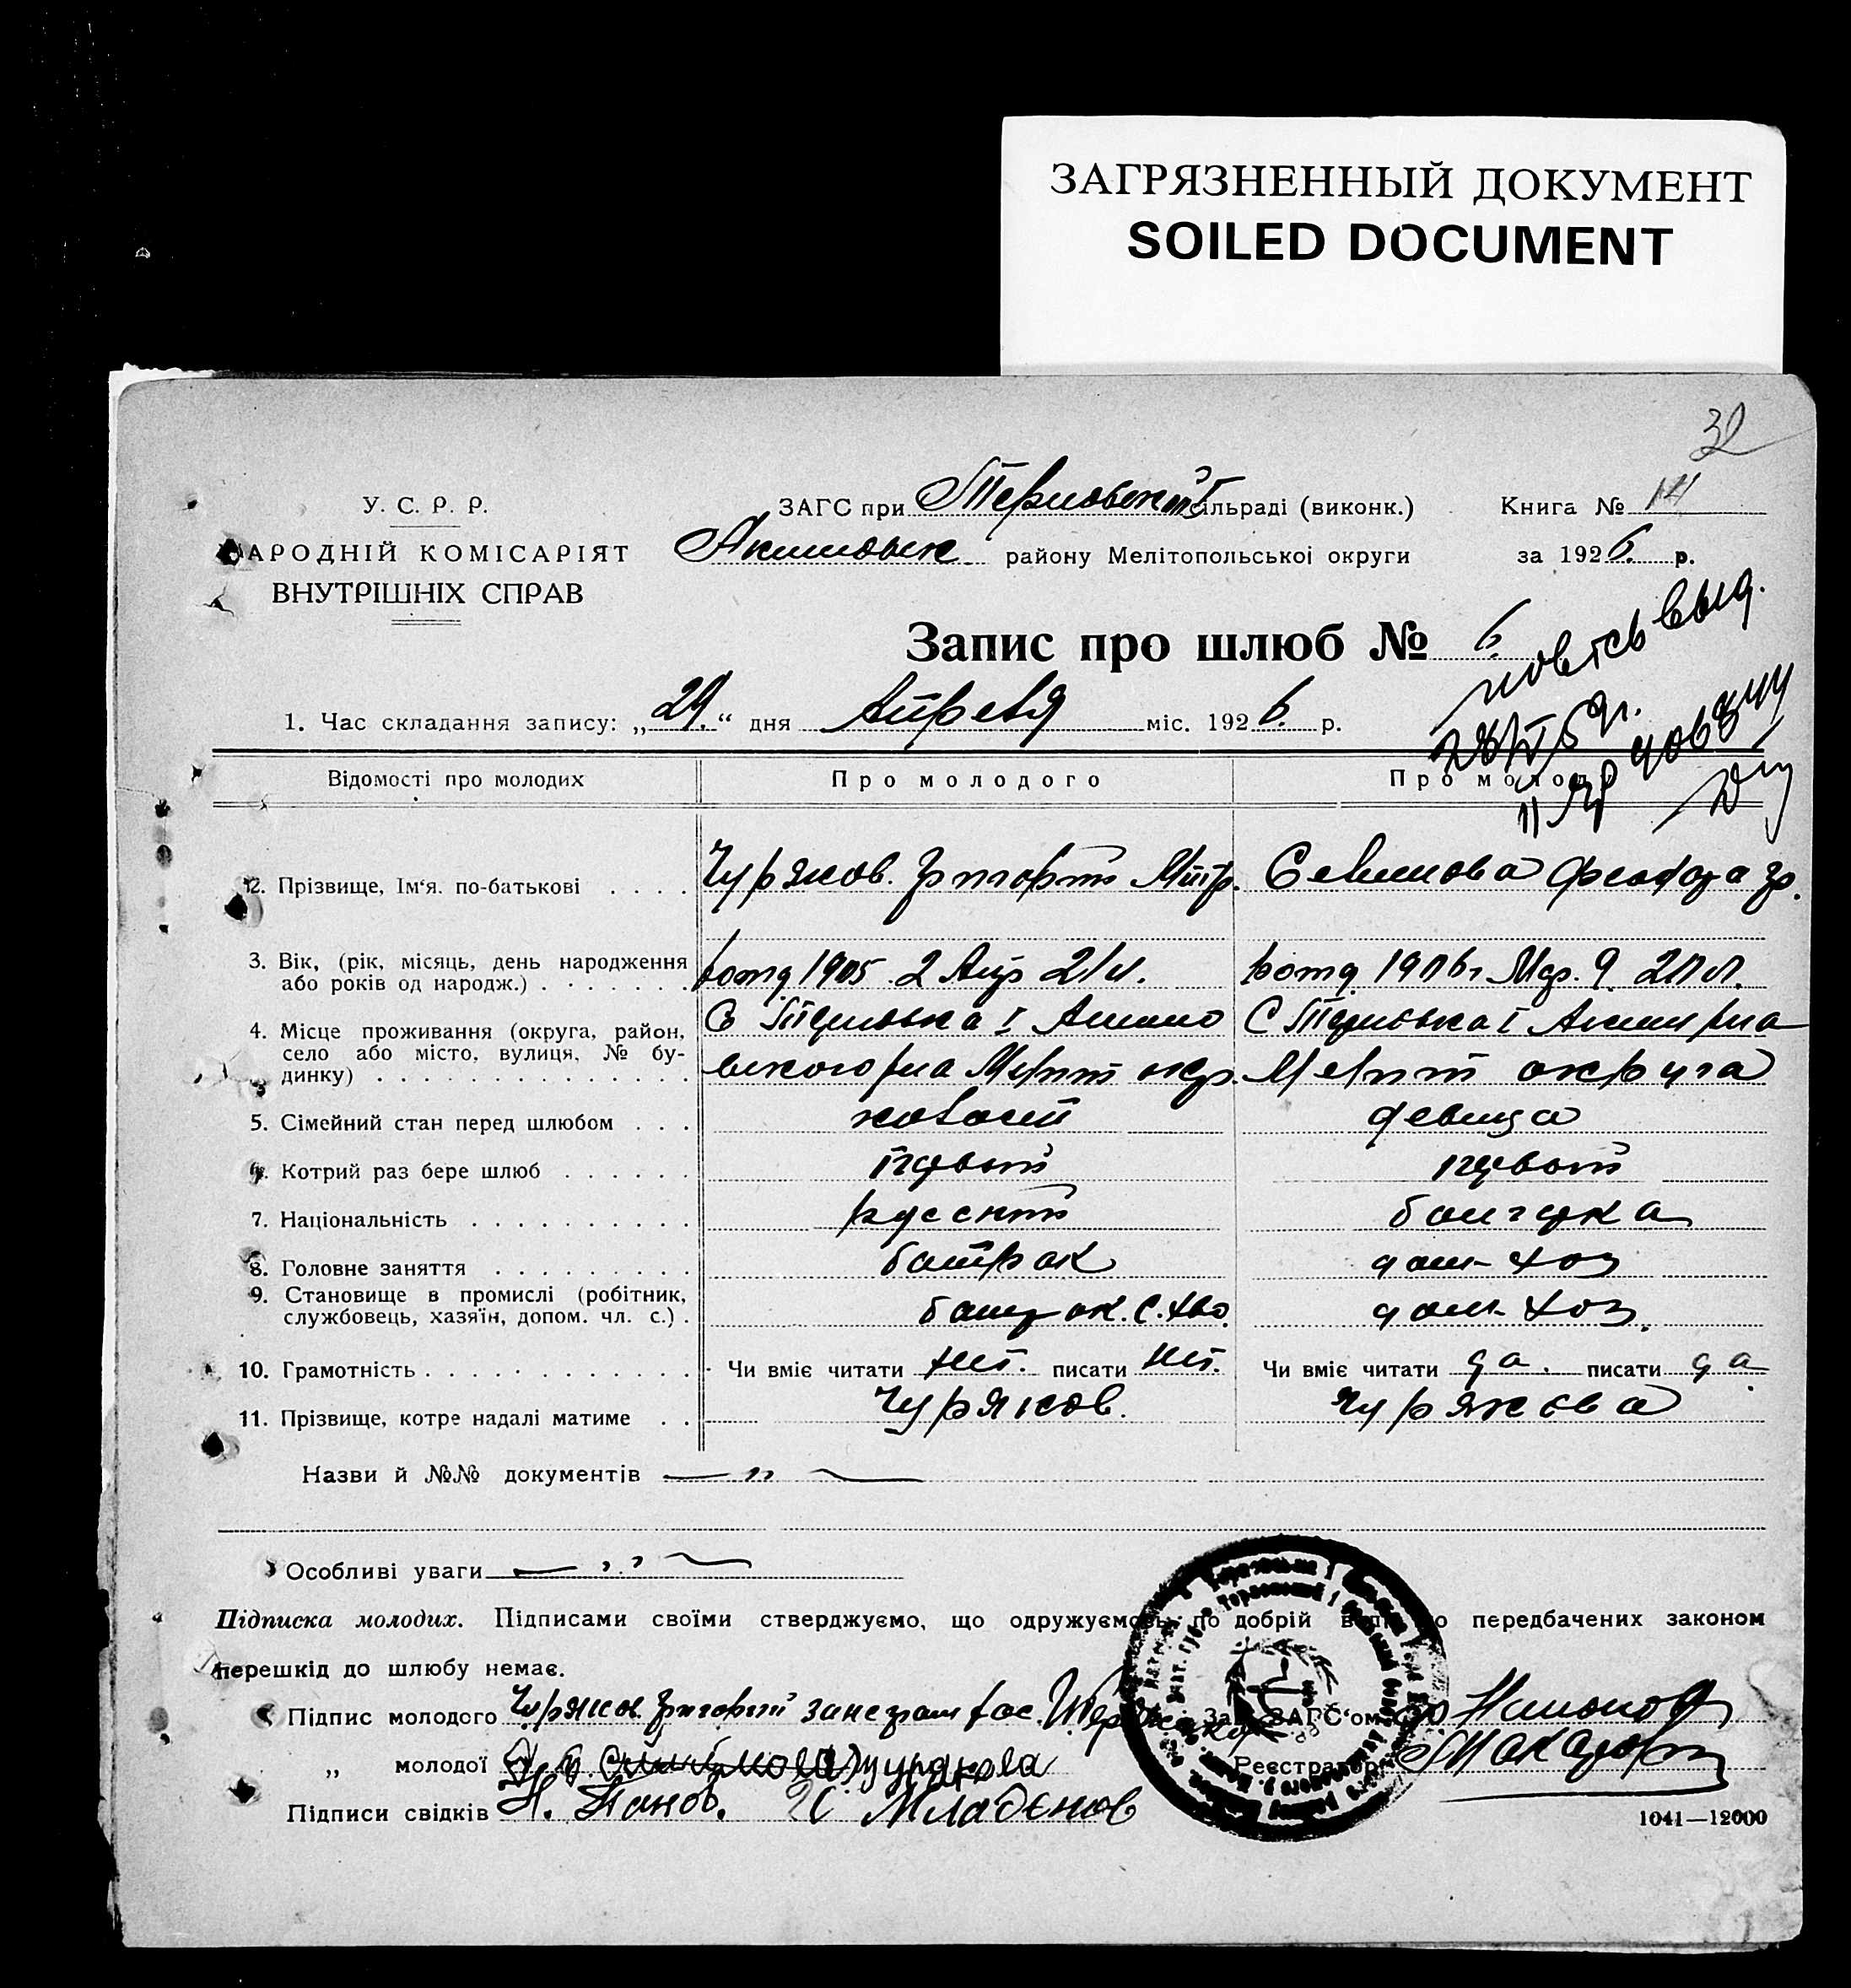 ЗАГРЯЗНЕННЫЙ ДОКУМЕНТ
SOILED DOCUMENT
32
У. С. Р. Р.
НАРОДНІЙ КОМІСАРІЯТ
ВНУТРІШНІХ СПРАВ
ЗАГС при Терновской I сільраді (виконк.)
Акимовск району Мелітопольської округи
Книга № 14
за 1926 р.
Запис про шлюб № 6.
повтсв выд.
1. Час складання запису: „29.“ дня Апреля міс. 1926. р.
Відомості про молодих Про молодого Про молоду
12. Прізвище, Ім'я. по-батькові . . . . Чуряков. Григорий Митр. Севлимова Феодора Гр.
3. Вік, (рік, місяць, день народження рожд 1905 2 Апр 21 л. рожд 1906 г Мар. 9 20 л.
або років од народж.) . . . . . . .
4. Місце проживання (округа, район, С Терновка I Акимо С Терновка I Аким р-на
село або місто, вулиця, № бу- вского р-на Мелит окр. Мелит округа
динку) . . . . . . . . . . . . . .
5. Сімейний стан перед шлюбом . . . холост девица
6. Котрий раз бере шлюб . . . . . . первый первый
7. Національність . . . . . . . . . . русский болгарка
8. Головне заняття . . . . . . . . . батрак дом-хоз
9. Становище в промислі (робітник,
службовець, хазяїн, допом. чл. с.) . батрак. С. хво. дом-хоз.
10. Грамотність . . . . . . . . . . . . Чи вміє читати нет. писати нет. Чи вміє читати да. писати да
11. Прізвище, котре надалі матиме . . Чуряков. Чурякова
Назви й №№ документів — „ —
Особливі уваги — „ —
Підписка молодих. Підписами своїми стверджуємо, що одружуємось по добрій волі що передбачених законом
перешкід до шлюбу немає.
Підпис молодого Чуряков Григорий за неграм рос. Зав. ЗАГС'ом
„ молодої Чурякова Реєстратор
Підписи свідків Н. Танов. Младенов
1041—12000